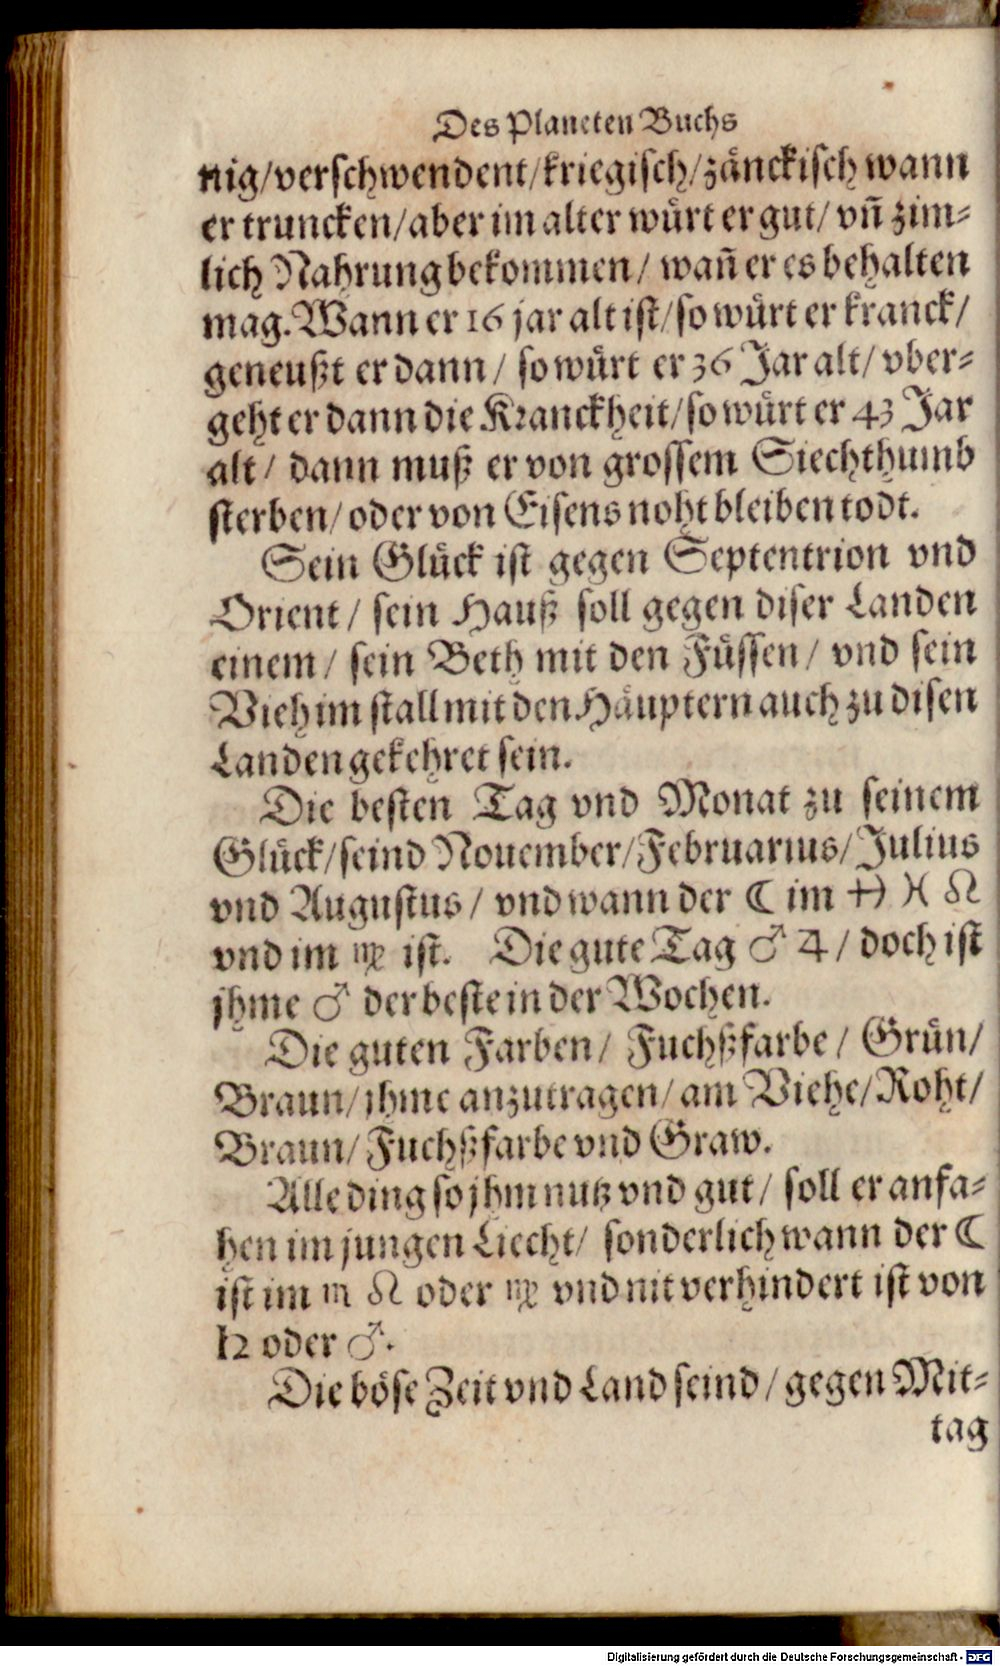 Des Planeten Buchs
nig/verschwendent/kriegisch/zänckisch wann
er truncken/aber im alter würt er gut/ vñ zim⸗
lich Nahrung bekommen/ wañ er es behalten
mag. Wann er 16 jar alt ist/so würt er kranck/
geneußt er dann/ so würt er 36 Jar alt/ vber⸗
geht er dann die Kranckheit/so würt er 43 Jar
alt/ dann muß er von grossem Siechthumb
sterben/ oder von Eisens noht bleiben todt.
Sein Glück ist gegen Septentrion vnd
Orient/ sein Hauß soll gegen diser Landen
einem/ sein Beth mit den Füssen/ vnd sein
Vieh im stall mit den Häuptern auch zu disen
Landen gekehret sein.
Die besten Tag vnd Monat zu seinem
Glück/seind Nouember/Februarius/Julius
vnd Augustus/ vnd wann der ☾ im ♐ ♓ ♌
vnd im ♍ ist. Die gute Tag ♂ ♃/ doch ist
jhme ♂ der beste in der Wochen.
Die guten Farben/ Fuchßfarbe/ Grün/
Braun/jhme anzutragen/ am Viehe/Roht/
Braun/ Fuchßfarbe vnd Graw.
Alle ding so jhm nutz vnd gut/ soll er anfa⸗
hen im jungen Liecht/ sonderlich wann der ☾
ist im ♏ ♌ oder ♍ vnd nit verhindert ist von
♄ oder ♂.
Die böse Zeit vnd Land seind/ gegen Mit⸗
tag
Digitalisierung gefördert durch die Deutsche Forschungsgemeinschaft - DFG